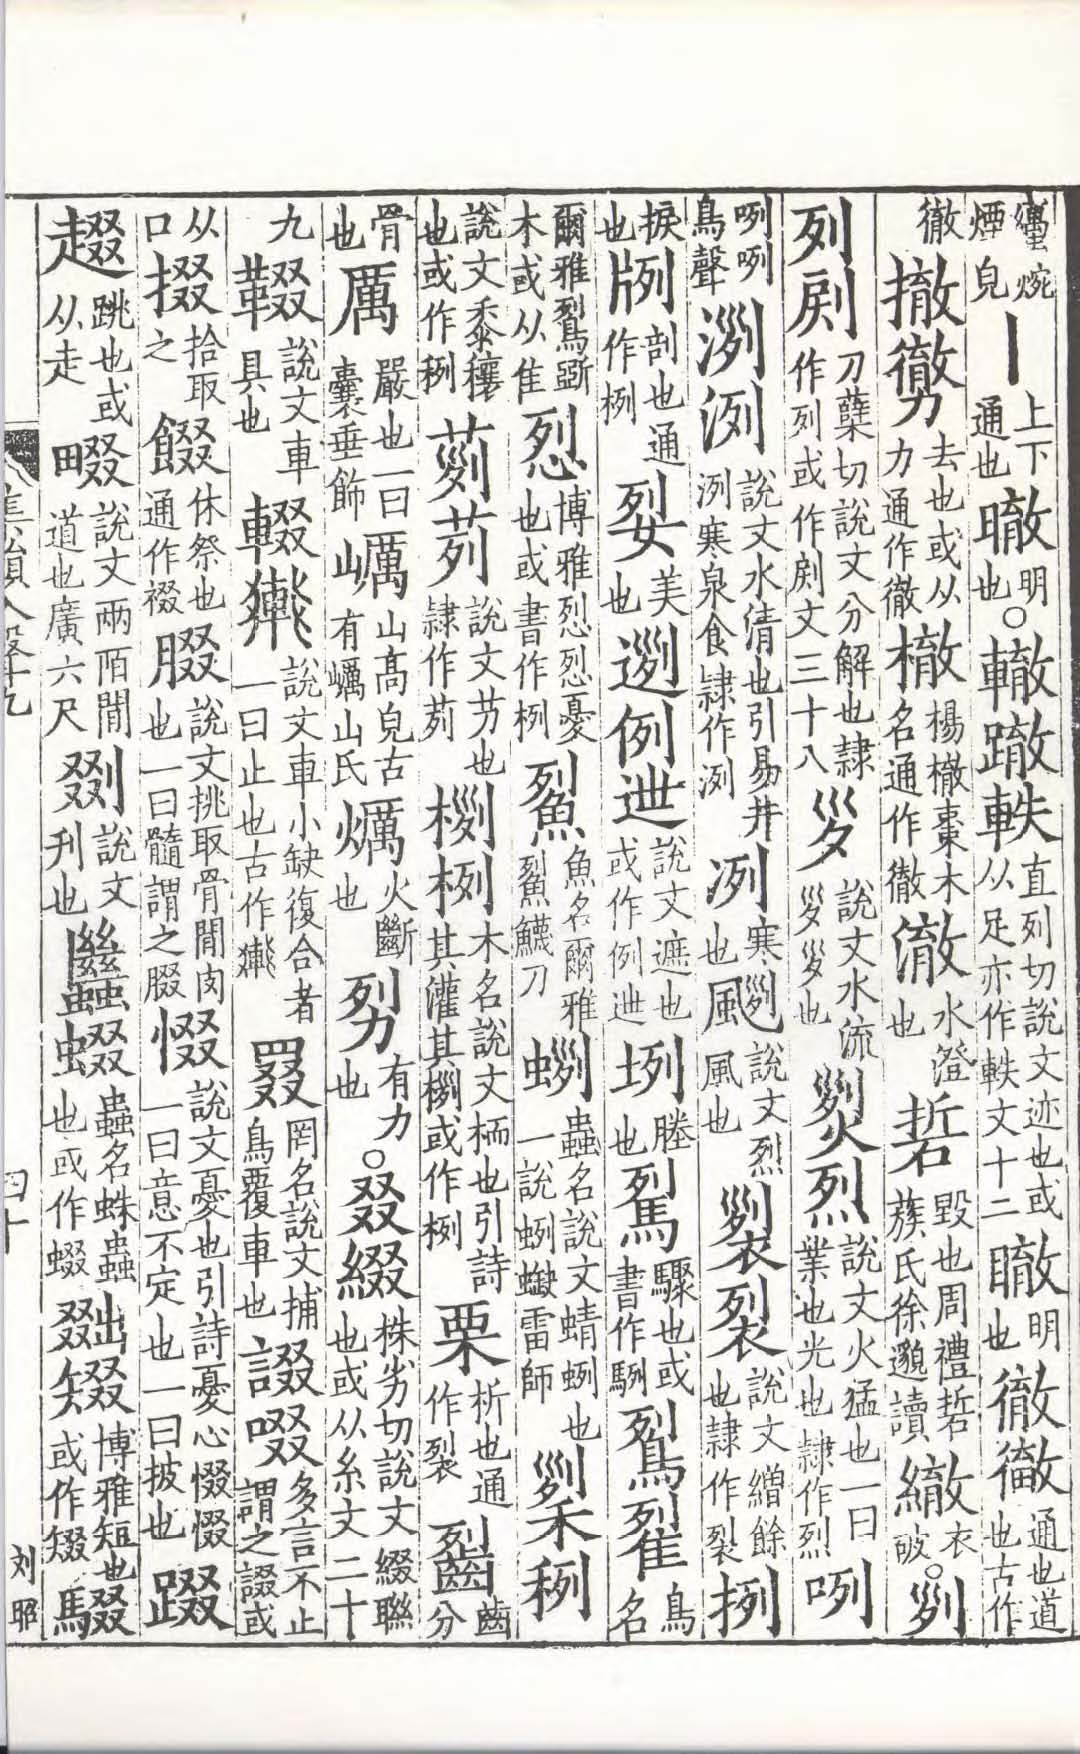 煙皃丨上下通也㬚明也○轍𨅊軼直列切說文迹也或从足亦作軼文十二瞮明也徹通也道也古作
徹撤𢕹去也或从力通作徹樴名通作徹澈水澄也硩毀也周禮硩蔟氏徐邈讀䊝衣破○𠛱
列𠛱力櫱切說文分解也隸作列或作𠛱文三十八𡿪說文水流𡿪𡿪也烈說文火猛也一曰業也光也隸作烈咧
咧咧鳥聲洌說文水清也引易井洌寒泉食隸作洌冽寒也颲說文烈風也裂說文繒餘也隸作裂挒
捩也𤗊剖也通作栵㛤美也迾例迣說文遮也或作例迣埒塍也䮋驟也或書作䮋鴷䴕鳥名
爾雅鴷斲木或从隹㤠博雅烈烈憂也或書作㤠鮤魚名爾雅鮤鱴刀蛚蟲名說文蜻蛚也一說蛚蟩雷師䅀
說文黍穰也或作䅀茢說文芀也隸作茢栵木名說文栭也引詩其灌其栵或作栵栗析也通作裂𪗱齒分
骨也厲嚴也一曰囊垂飾巁山高皃古有巁山氏爄火斷也㔹有力也○叕綴株劣切說文綴聯也或从糸文二十
九𩋁說文車具也輟說文車小缺復合者一曰止也古作罬罔名說文捕鳥覆車也諁啜多言不止謂之諁或
从口掇拾取之餟休祭也通作裰腏說文挑取骨閒肉也一曰髓謂之腏惙說文憂也引詩憂心惙惙一曰意不定也一曰披也踱
𧼈跳也或从走畷說文兩陌閒道也廣六尺剟說文刊也蝃蟲名蛛蟊也或作蝃㚄博雅短也或作䠿
四十
刘昭